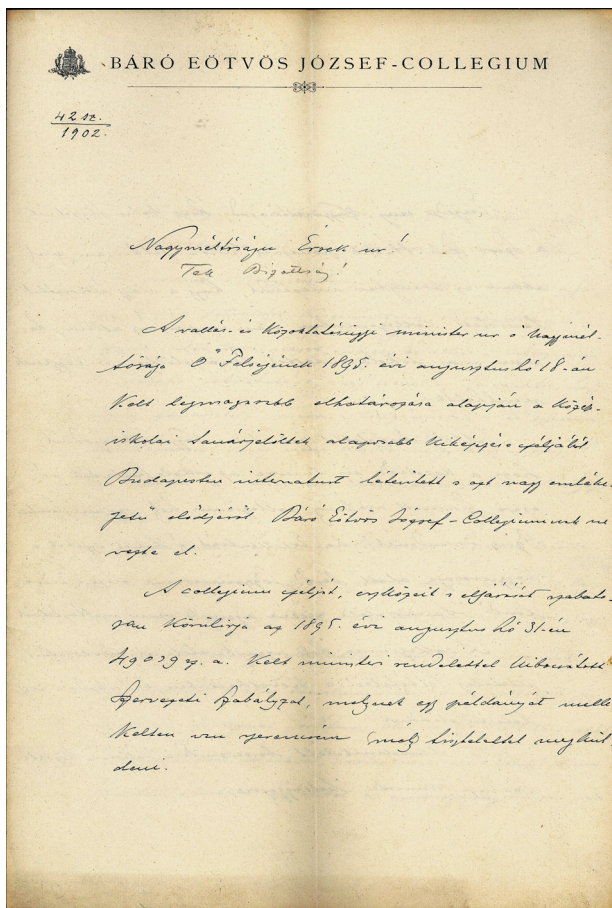 BÁRÓ EÖTVÖS JÓZSEF-COLLEGIUM
42 sz.
1902.
Nagyméltóságu Érsek ur!
Tek. Bizottság!
A vallás- és Közoktatásügyi minister ur ő nagymél-
tósága Ő Felségének 1895. évi augusztus hó 18-án
Kelt legmagasabb elhatározása alapján a Közép-
iskolai tanárjelöltek alaposabb Kiképzése céljából
Budapesten internatust létesített s azt nagy emléke-
zetű elődjéről Báró Eötvös József-Collegiumnak ne
vezte el.
A collegium célját, eszközeit s eljárását szabato-
san Körülírja az 1895. évi augusztus hó 31-én
49039 sz. a. Kelt ministeri rendelettel Kibocsátott
Szervezeti Szabályzat, melynek egy példányát mellé
Kelten van szerencsém mély tisztelettel megkül-
deni.